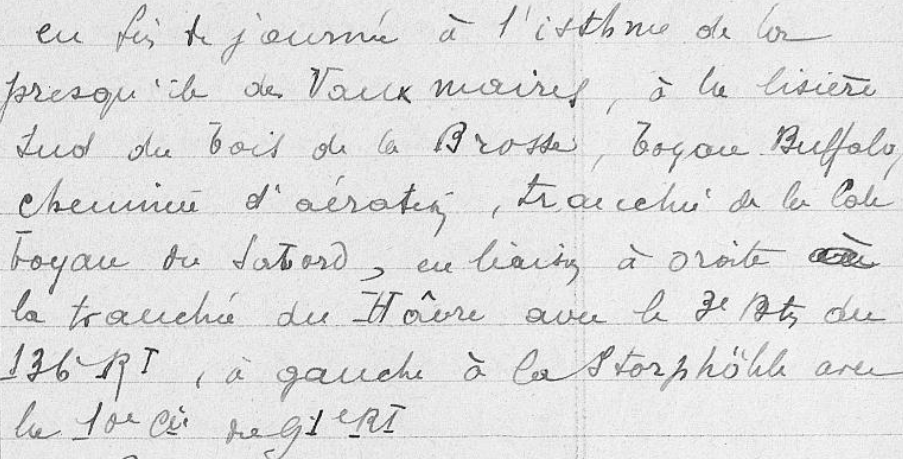 en fin de journée à l'isthme de la
presqu'ile des Vaux maires, à la lisière
Sud du bois de la Brosse, boyau Buffalo,
cheminée d'aération, tranchée de la Cote
boyau du Sabord, en liaison à droite
la tranchée du Hâvre avec le 3e Btn du
136 RI, à gauche à la Storphöhle avec
la 10e Cie du 91e RI